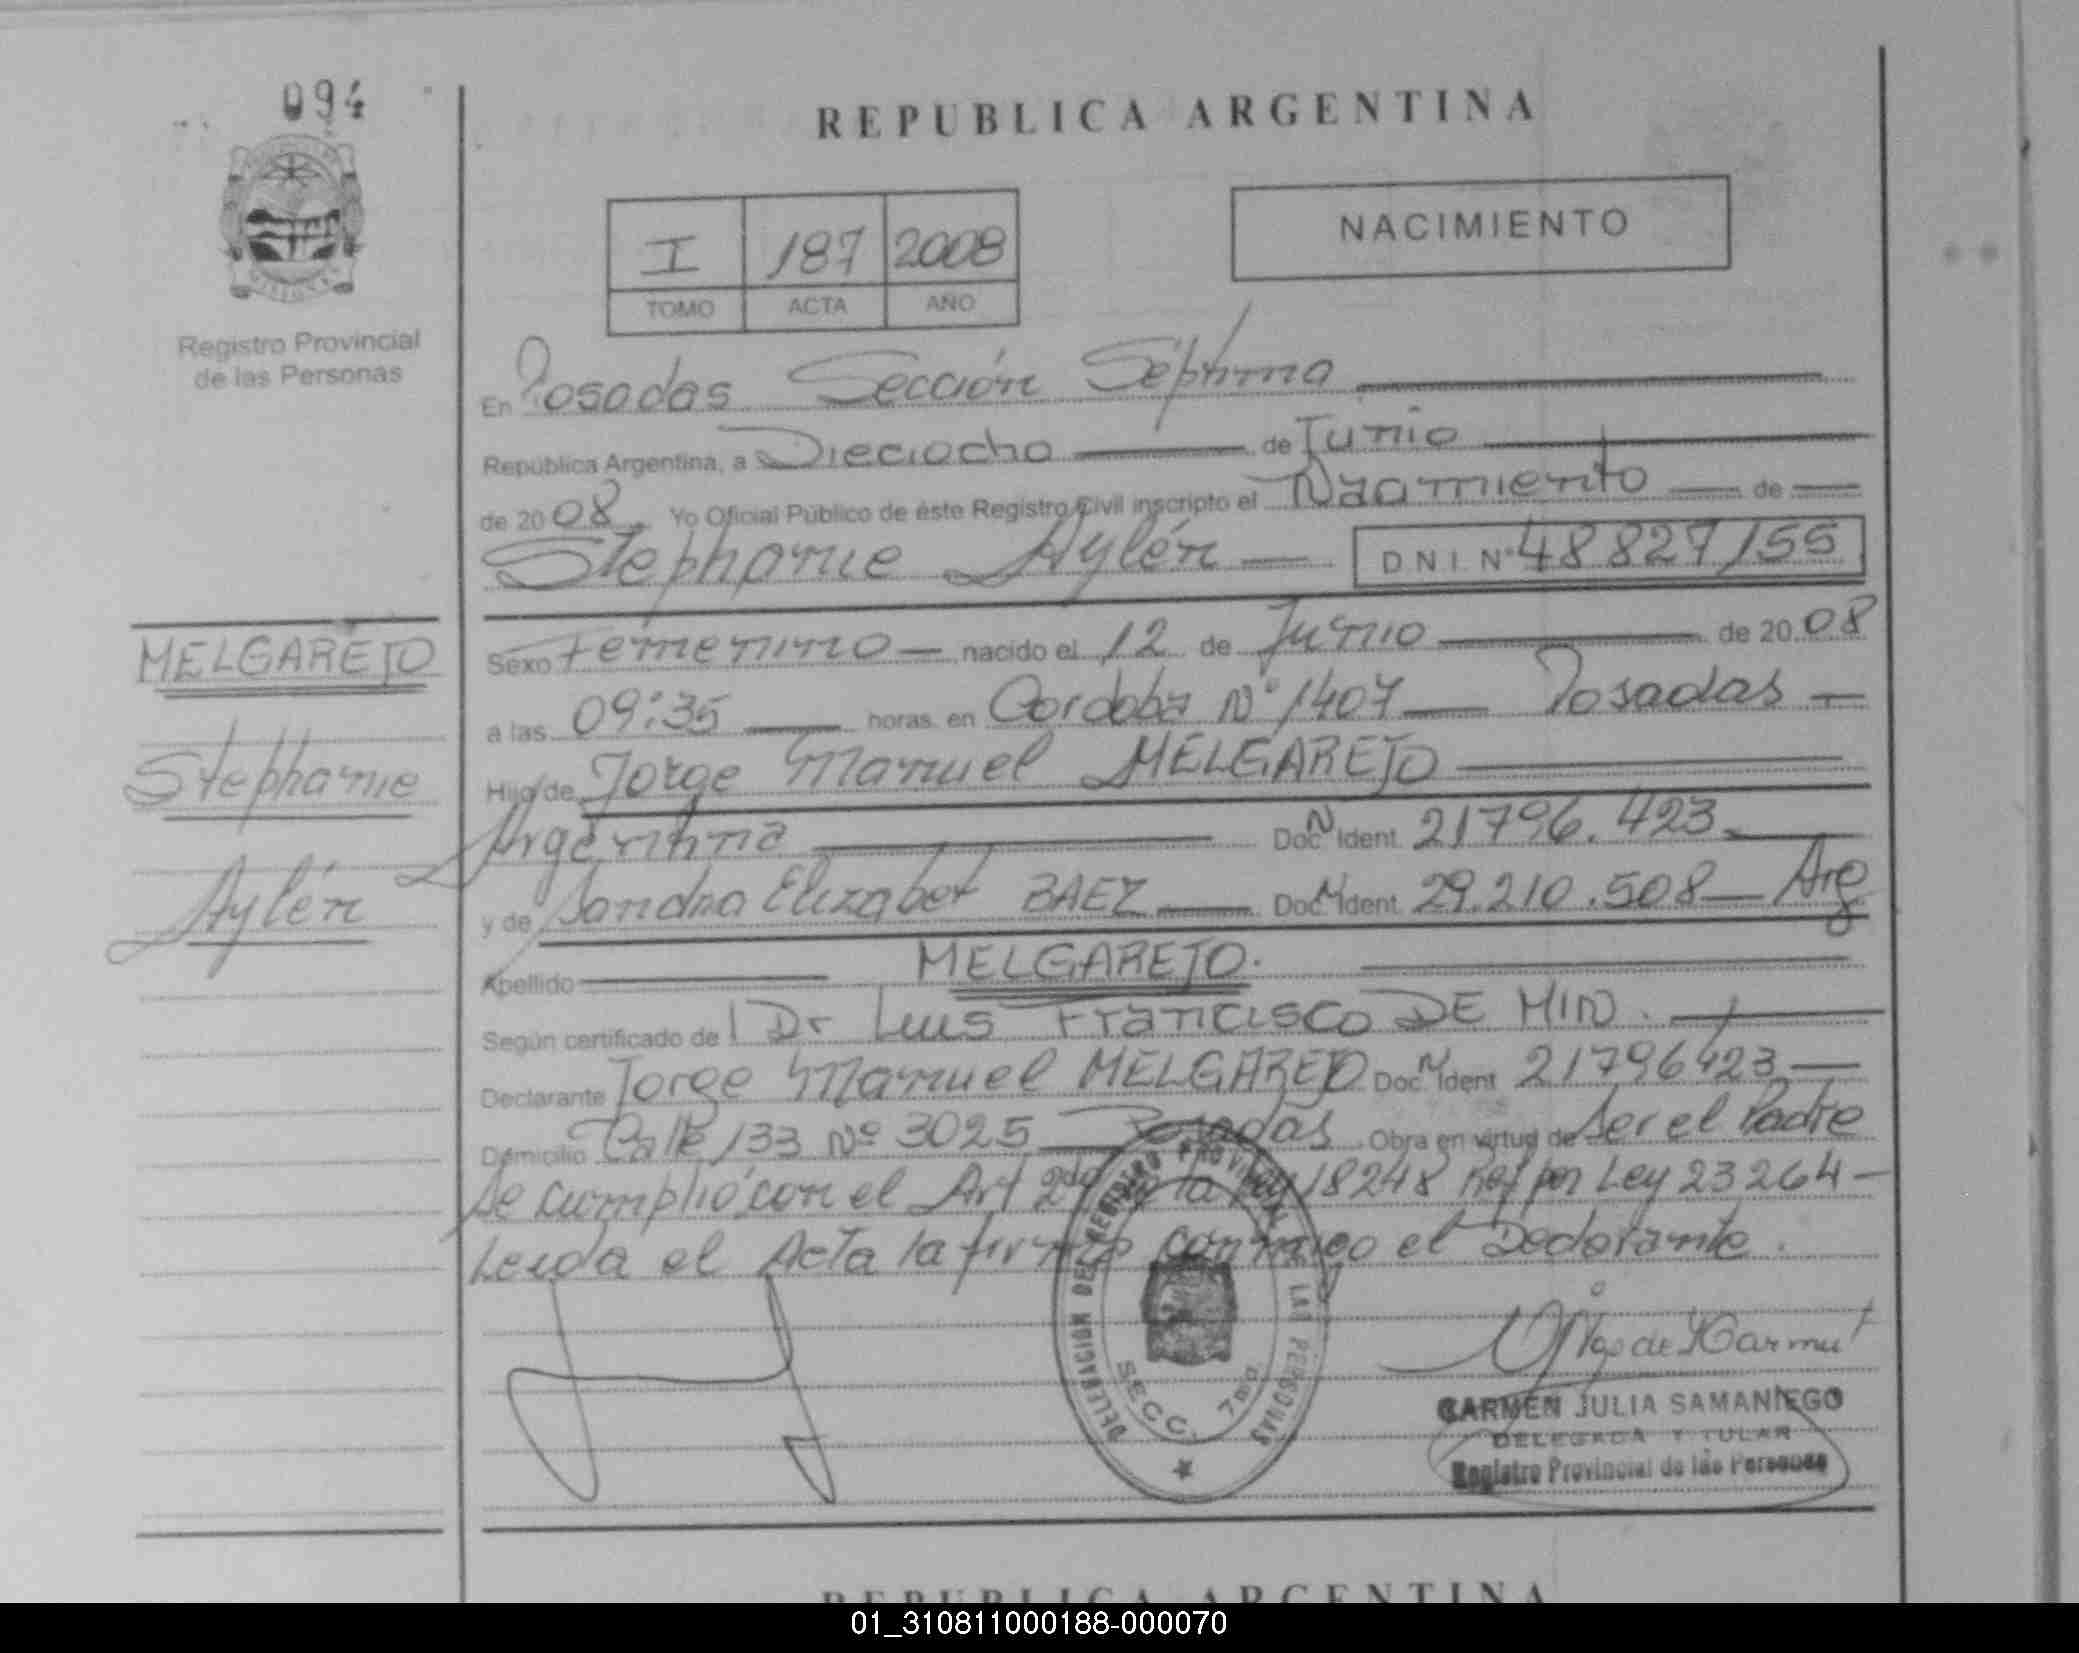 094
REPUBLICA ARGENTINA
I 187 2008
TOMO ACTA AÑO
NACIMIENTO
Registro Provincial
de las Personas
En Posadas Sección Séptima
República Argentina, a Dieciocho de Junio
de 2008. Yo Oficial Público de éste Registro Civil inscripto el Nacimiento de
Stephanie Aylén D N I N° 48827155
MELGAREJO
Stephanie
Aylén
Sexo Femenino nacido el 12 de Junio de 2008
a las 09:35 horas en Cordoba N° 1407 Posadas
Hijo/de Jorge Manuel MELGAREJO
Argentina Doc N Ident. 21796.423
y de Sandra Elizabet BAEZ Doc N Ident. 29.210.508 Arg
Apellido MELGAREJO.
Según certificado de Dr Luis Francisco DE MIN.
Declarante Jorge Manuel MELGAREJO Doc N Ident 21796423
Domicilio Calle 133 Nº 3025 Posadas Obra en virtud de Ser el Padre
Se cumplió con el Art 2do de la Ley 18248 Ref por Ley 23264
Leida el Acta la firma conmigo el Declarante.
DELEGACION DEL REGISTRO PROVINCIAL DE LAS PERSONAS
SECC. 7ma
CARMEN JULIA SAMANIEGO
DELEGADA TITULAR
Registro Provincial de las Personas
REPUBLICA ARGENTINA
01_310811000188-000070